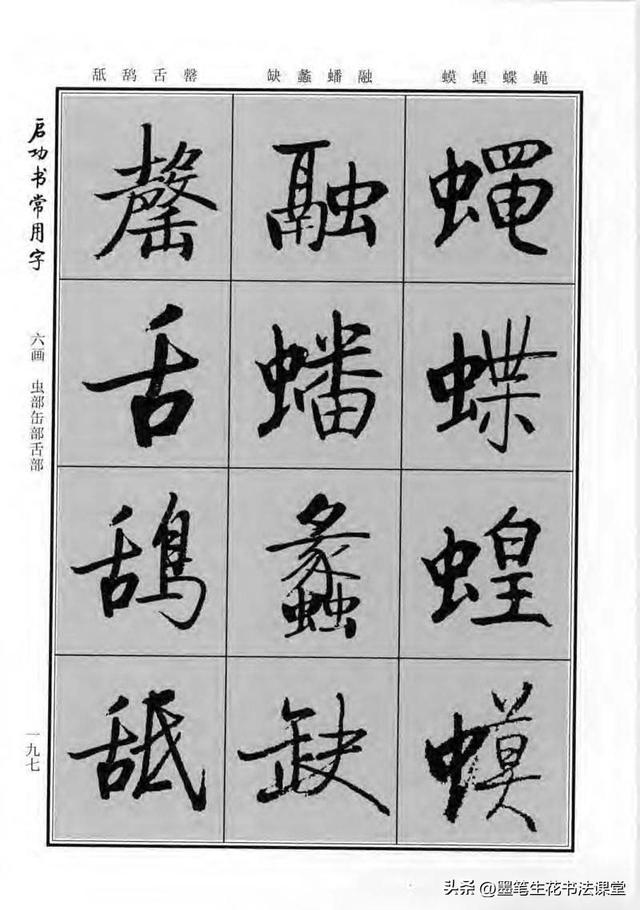 蝇 蝶 蝗 蟆
融 蟠 蠡 缺
罄 舌 鸹 舐
启功书常用字
六画 虫部缶部舌部
一九七
蝇蝶蝗蟆
融蟠蠡缺
罄舌鸹舐
头条 @墨笔生花书法课堂